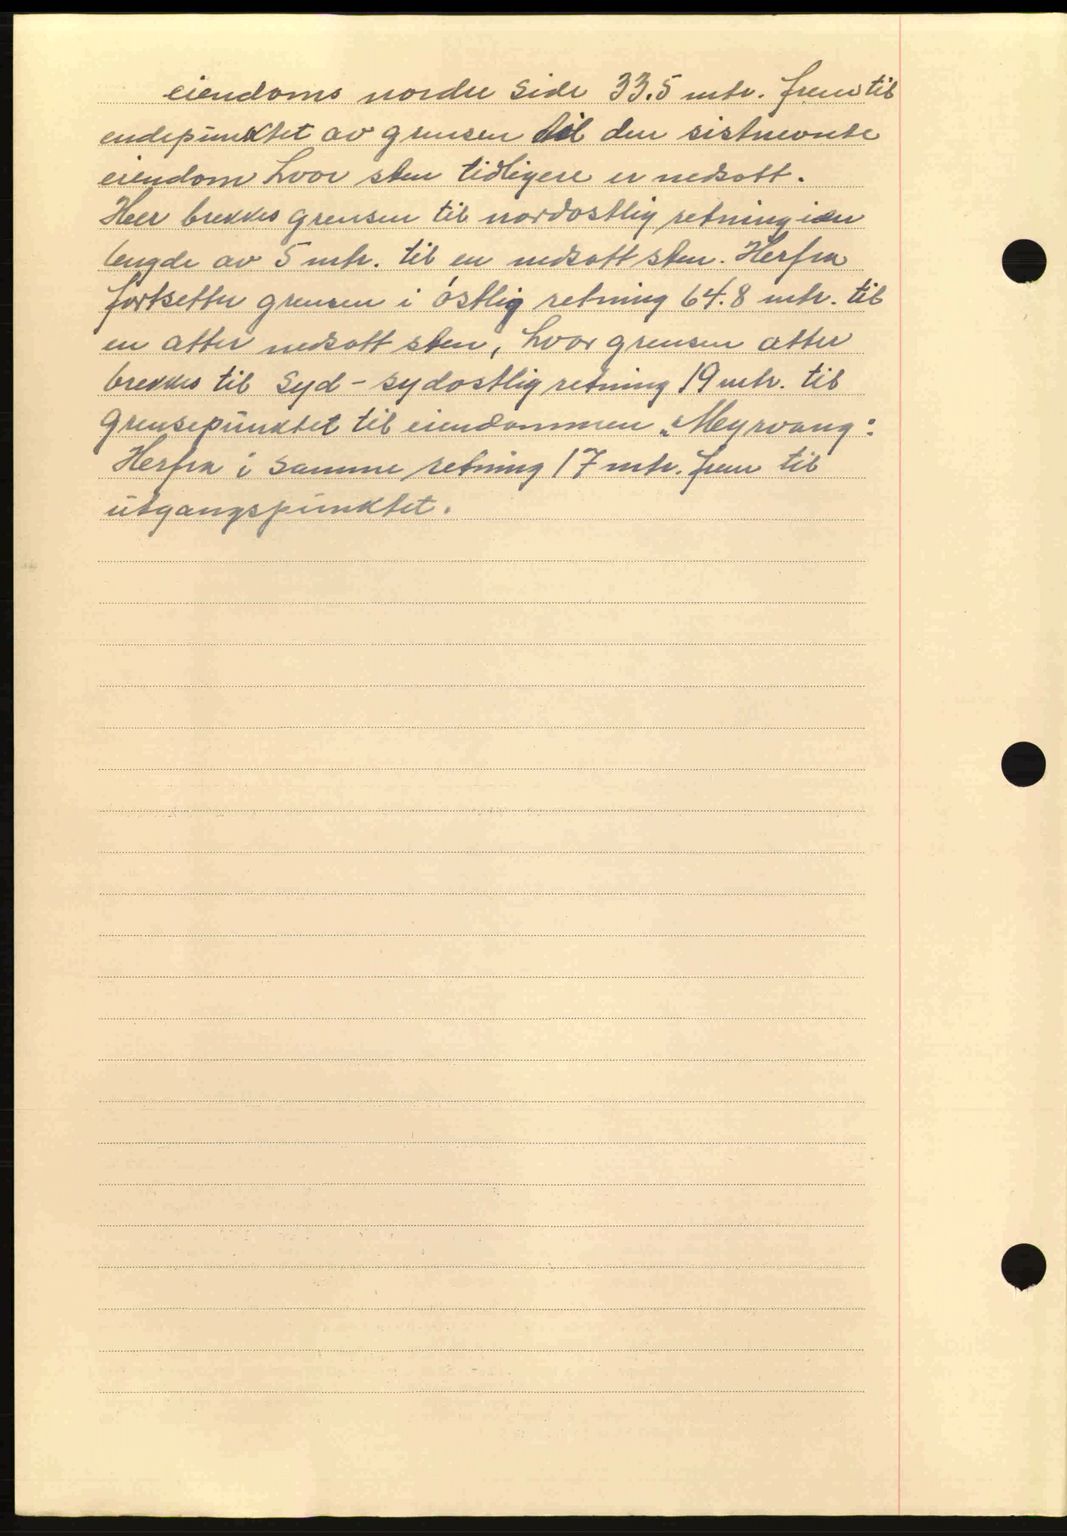 eiendoms nordre side 33.5 mtr. frem til
endepunktet av grensen til den sistnevnte
eiendom hvor sten tidligere er nedsatt.
Her brekkes grensen til nordostlig retning i en
lengde av 5 mtr. til en nedsatt sten. Herfra
fortsetter grensen i östlig retning 64.8 mtr. til
en atter nedsatt sten, hvor grensen atter
brekkes til Syd-sydostlig retning 19 mtr. til
grensepunktet til eiendommen „Meyrvang":
Herfra i samme retning 17 mtr. frem til
utgangspunktet.